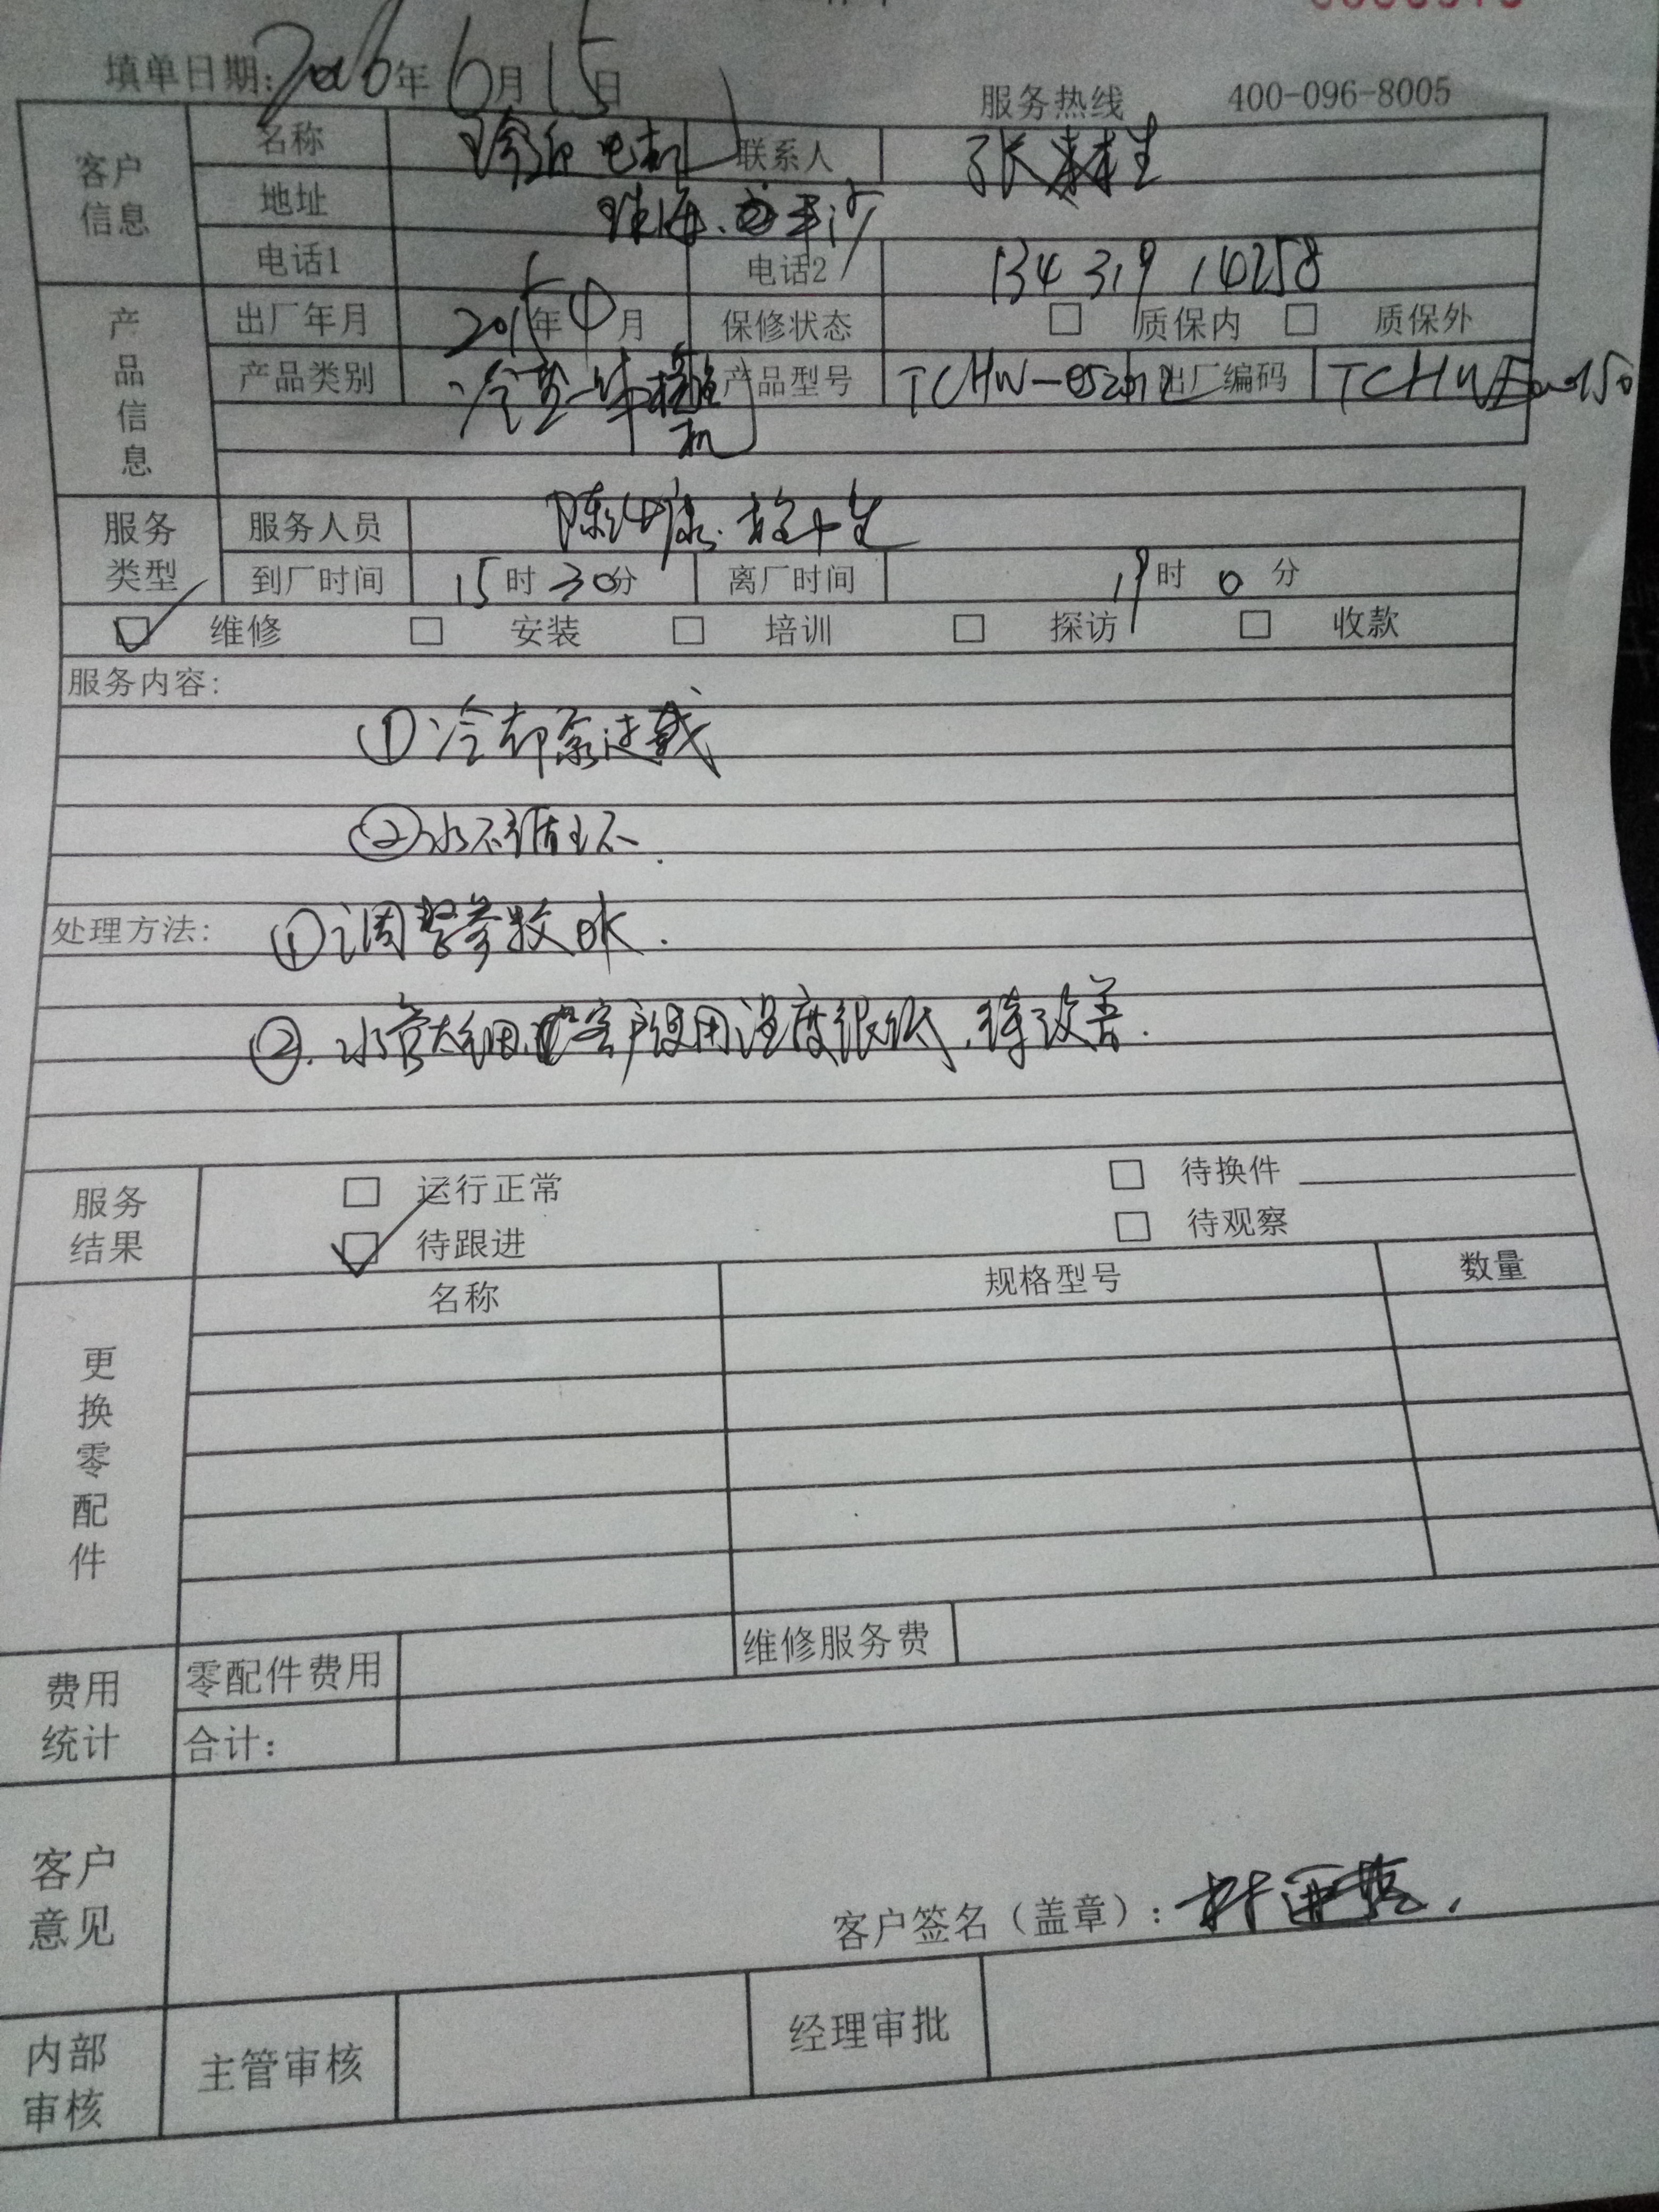 填单日期: 2016年6月15日
服务热线 400-096-8005
客户信息
名称 电机 联系人 张
地址 珠海、平沙
电话1 电话2 134 319 14258
产品信息
出厂年月 2015年4月 保修状态 □ 质保内 □ 质保外
产品类别 冷 一体 机 产品型号 TCHW- 出厂编码 TCHW
服务类型
服务人员 陈
到厂时间 15时30分 离厂时间 19时0分
☑ 维修 □ 安装 □ 培训 □ 探访 □ 收款
服务内容:
①冷却泵过载
②水不循环.
处理方法: ①调整参数OK.
②.水管太细,客户使用温度很低,待改善.
服务结果
□ 运行正常 □ 待换件
☑ 待跟进 □ 待观察
更换零配件
名称 规格型号 数量
费用统计
零配件费用 维修服务费
合计:
客户意见
客户签名(盖章):
内部审核
主管审核 经理审批